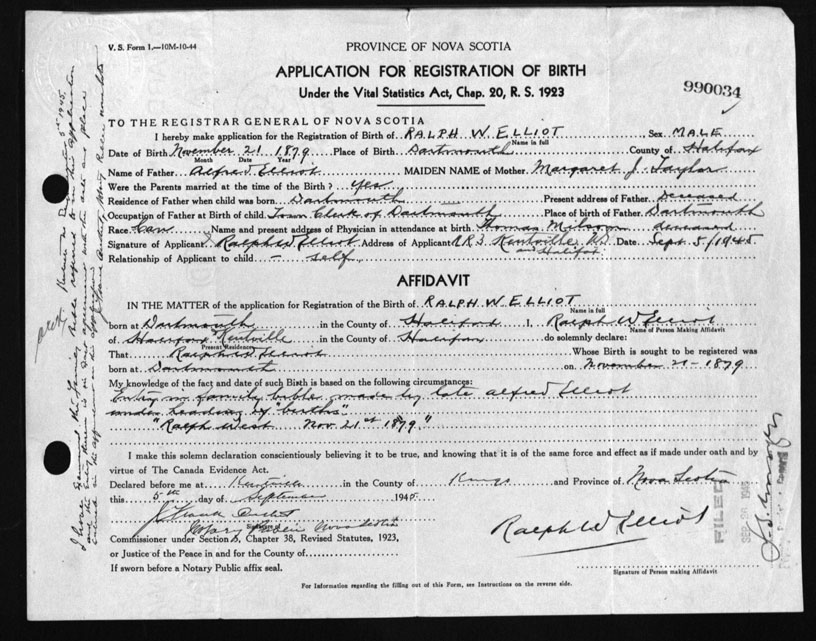 V. S. Form 1.—10M-10-44
PROVINCE OF NOVA SCOTIA
APPLICATION FOR REGISTRATION OF BIRTH
Under the Vital Statistics Act, Chap. 20, R. S. 1923
990034
TO THE REGISTRAR GENERAL OF NOVA SCOTIA
I hereby make application for the Registration of Birth of RALPH W. ELLIOT Sex MALE
Name in full
Date of Birth November 21 1879 Place of Birth Dartmouth County of Halifax
Month Date Year
Name of Father Alfred Elliot MAIDEN NAME of Mother Margaret J. Taylor
Were the Parents married at the time of the Birth? yes
Residence of Father when child was born Dartmouth Present address of Father Deceased
Occupation of Father at Birth of child Town Clerk of Dartmouth Place of birth of Father Dartmouth
Race Can Name and present address of Physician in attendance at birth Thomas Milsom deceased
Signature of Applicant Ralph W Elliot Address of Applicant R.R.3 Kentville N.S. Date Sept 5/1945
and Halifax
Relationship of Applicant to child — self
AFFIDAVIT
IN THE MATTER of the application for Registration of the Birth of RALPH W ELLIOT
Name in full
born at Dartmouth in the County of Halifax I, Ralph W Elliot
Name of Person Making Affidavit
of Halifax Kentville in the County of Halifax do solemnly declare:
Present Residence
That Ralph W Elliot Whose Birth is sought to be registered was
born at Dartmouth on November 21 - 1879
My knowledge of the fact and date of such Birth is based on the following circumstances:
Entry in family bible made by late Alfred Elliot
under heading of "births"
"Ralph West Nov. 21st 1879"
I make this solemn declaration conscientiously believing it to be true, and knowing that it is of the same force and effect as if made under oath and by
virtue of The Canada Evidence Act.
Declared before me at Kentville in the County of Kings and Province of Nova Scotia
this 5th day of September 1945
J Frank
Notary Public Nova Scotia
Ralph W Elliot
Commissioner under Section 5, Chapter 38, Revised Statutes, 1923,
or Justice of the Peace in and for the County of
If sworn before a Notary Public affix seal.
Signature of Person making Affidavit
For Information regarding the filling out of this Form, see Instructions on the reverse side.
FILED